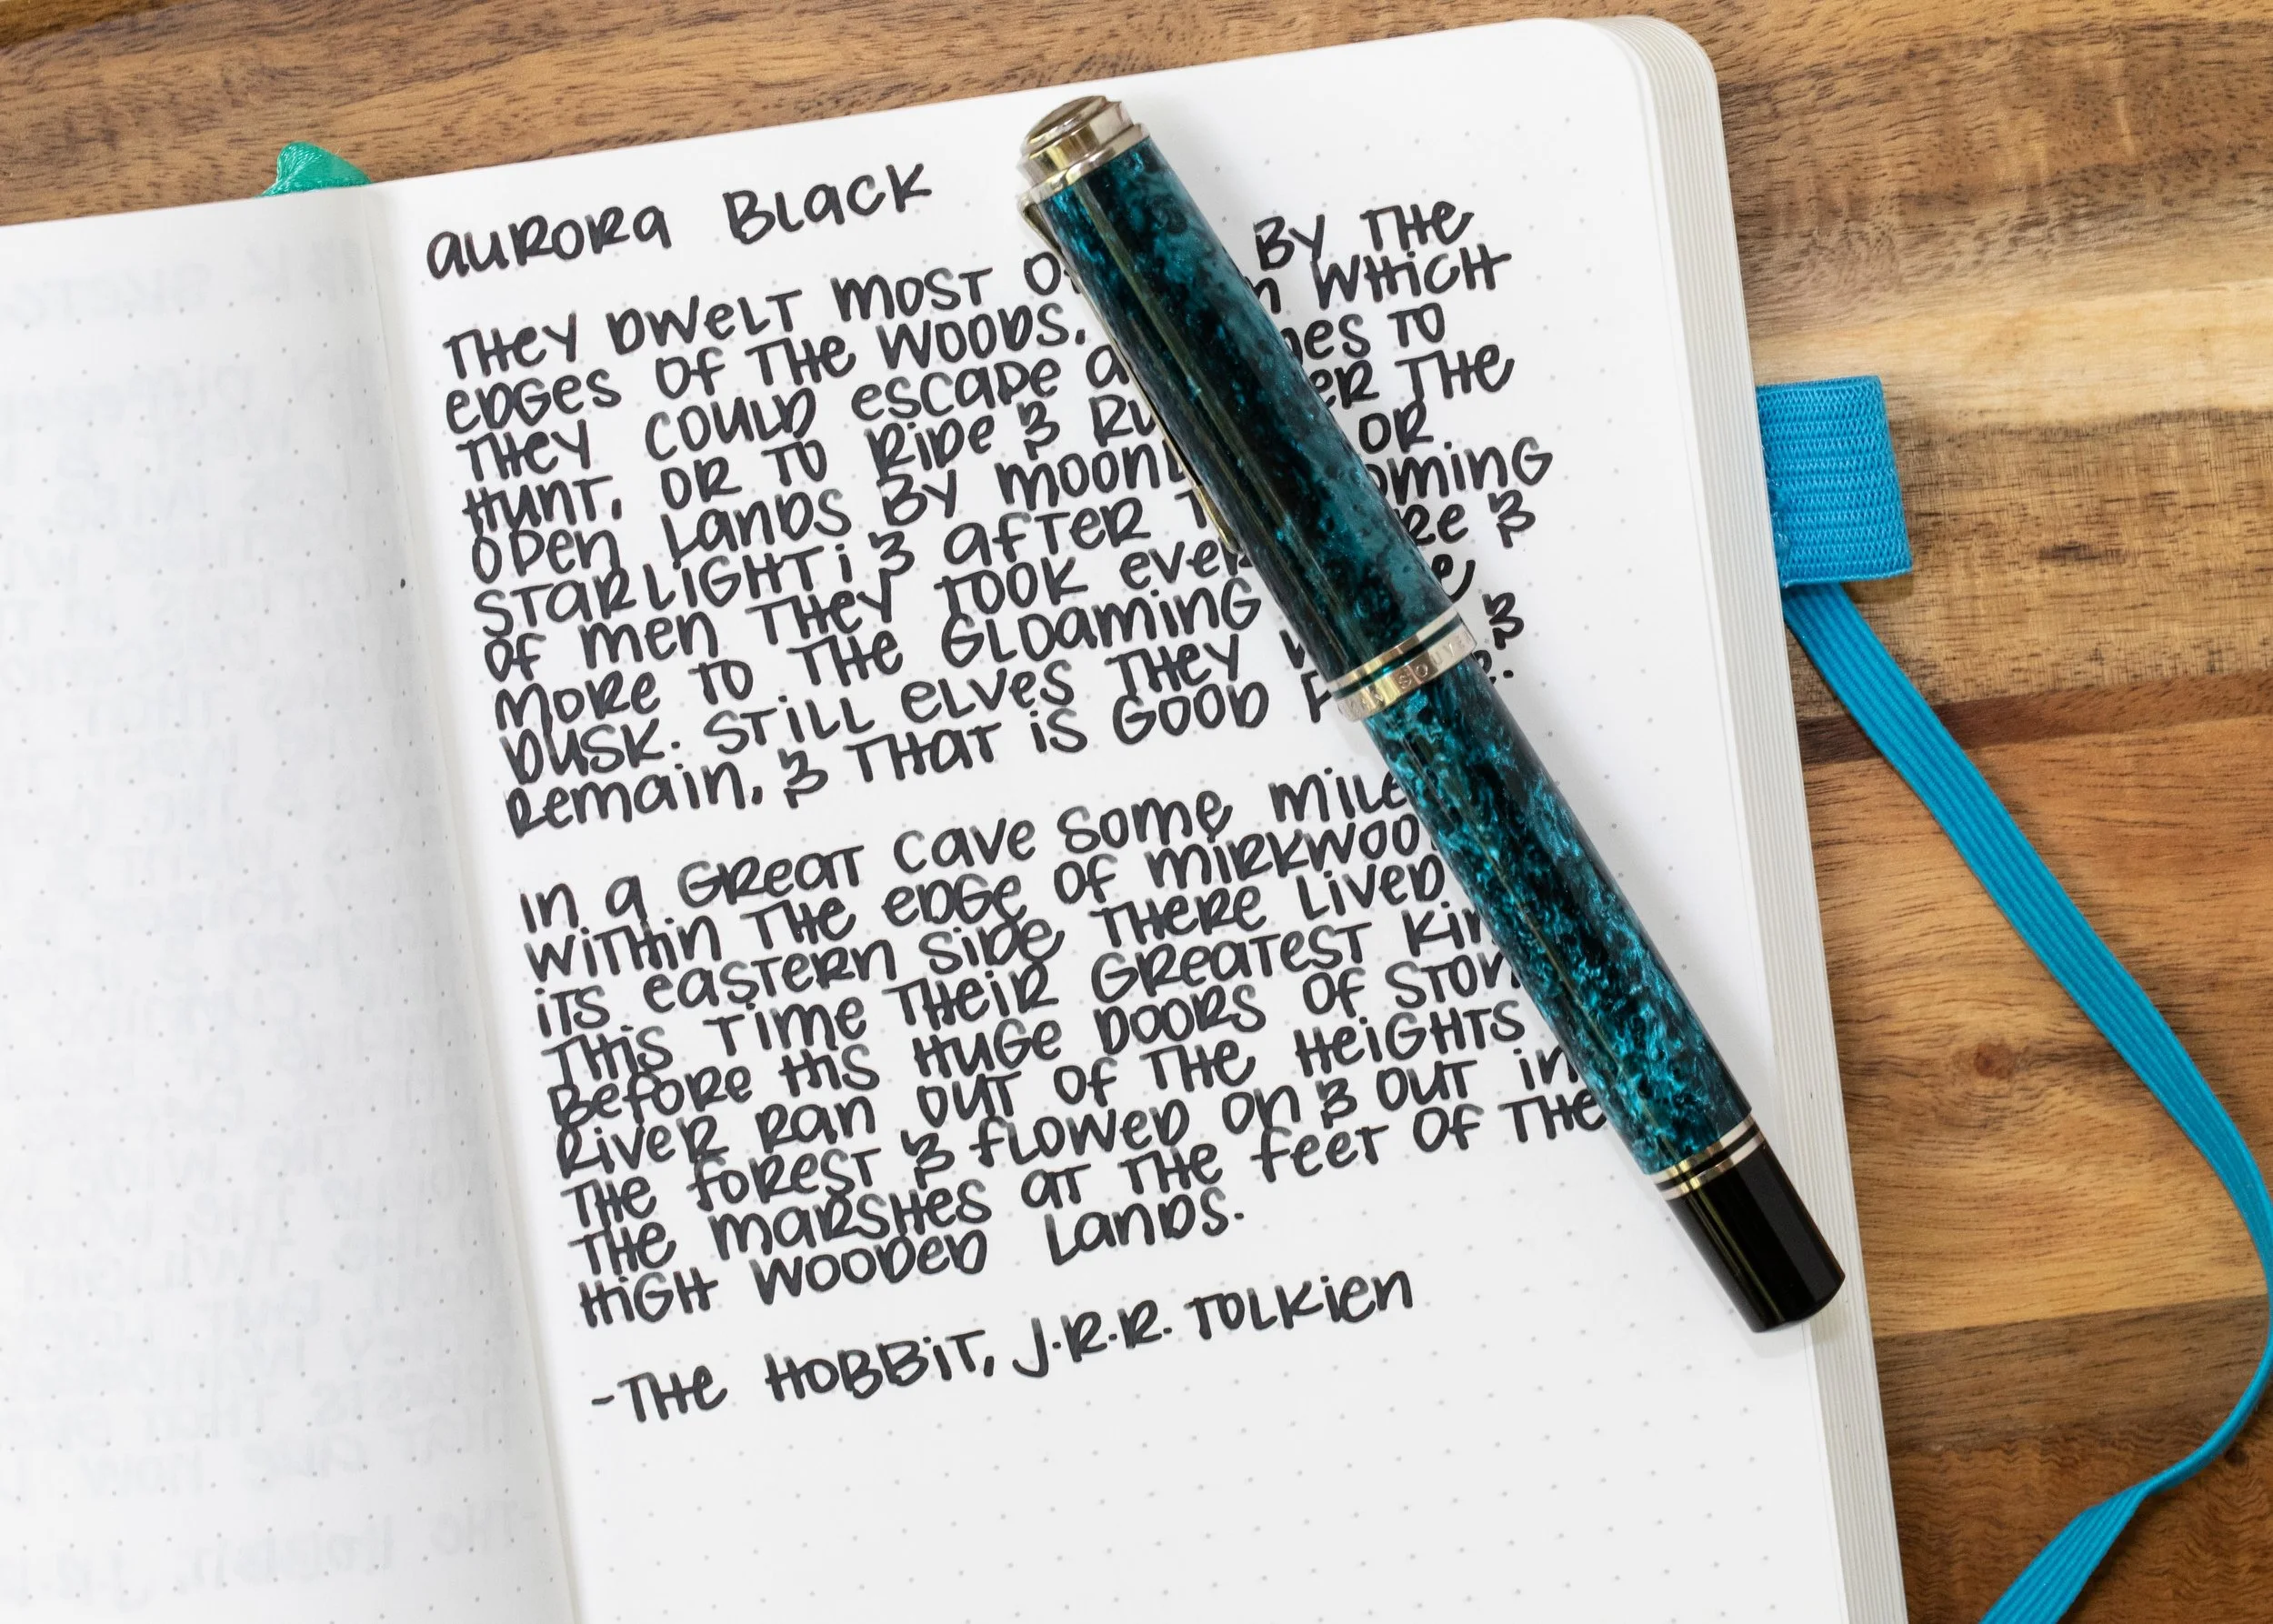 aurora Black
They dwelt most o by the
edges of the woods. which
they could escape a to
hunt, or to ride & ru the
open lands by moonl or
starlight; & after t oming
of men they took ever re &
more to the gloaming
dusk. Still elves they &
remain, & that is good
In a great cave some mile
within the edge of Mirkwoo
its eastern side there lived
this time their greatest kin
Before his huge doors of ston
river ran out of the heights
the forest & flowed on & out in
the marshes at the feet of the
high wooded lands.
-The Hobbit, J.R.R. Tolkien
SOUV